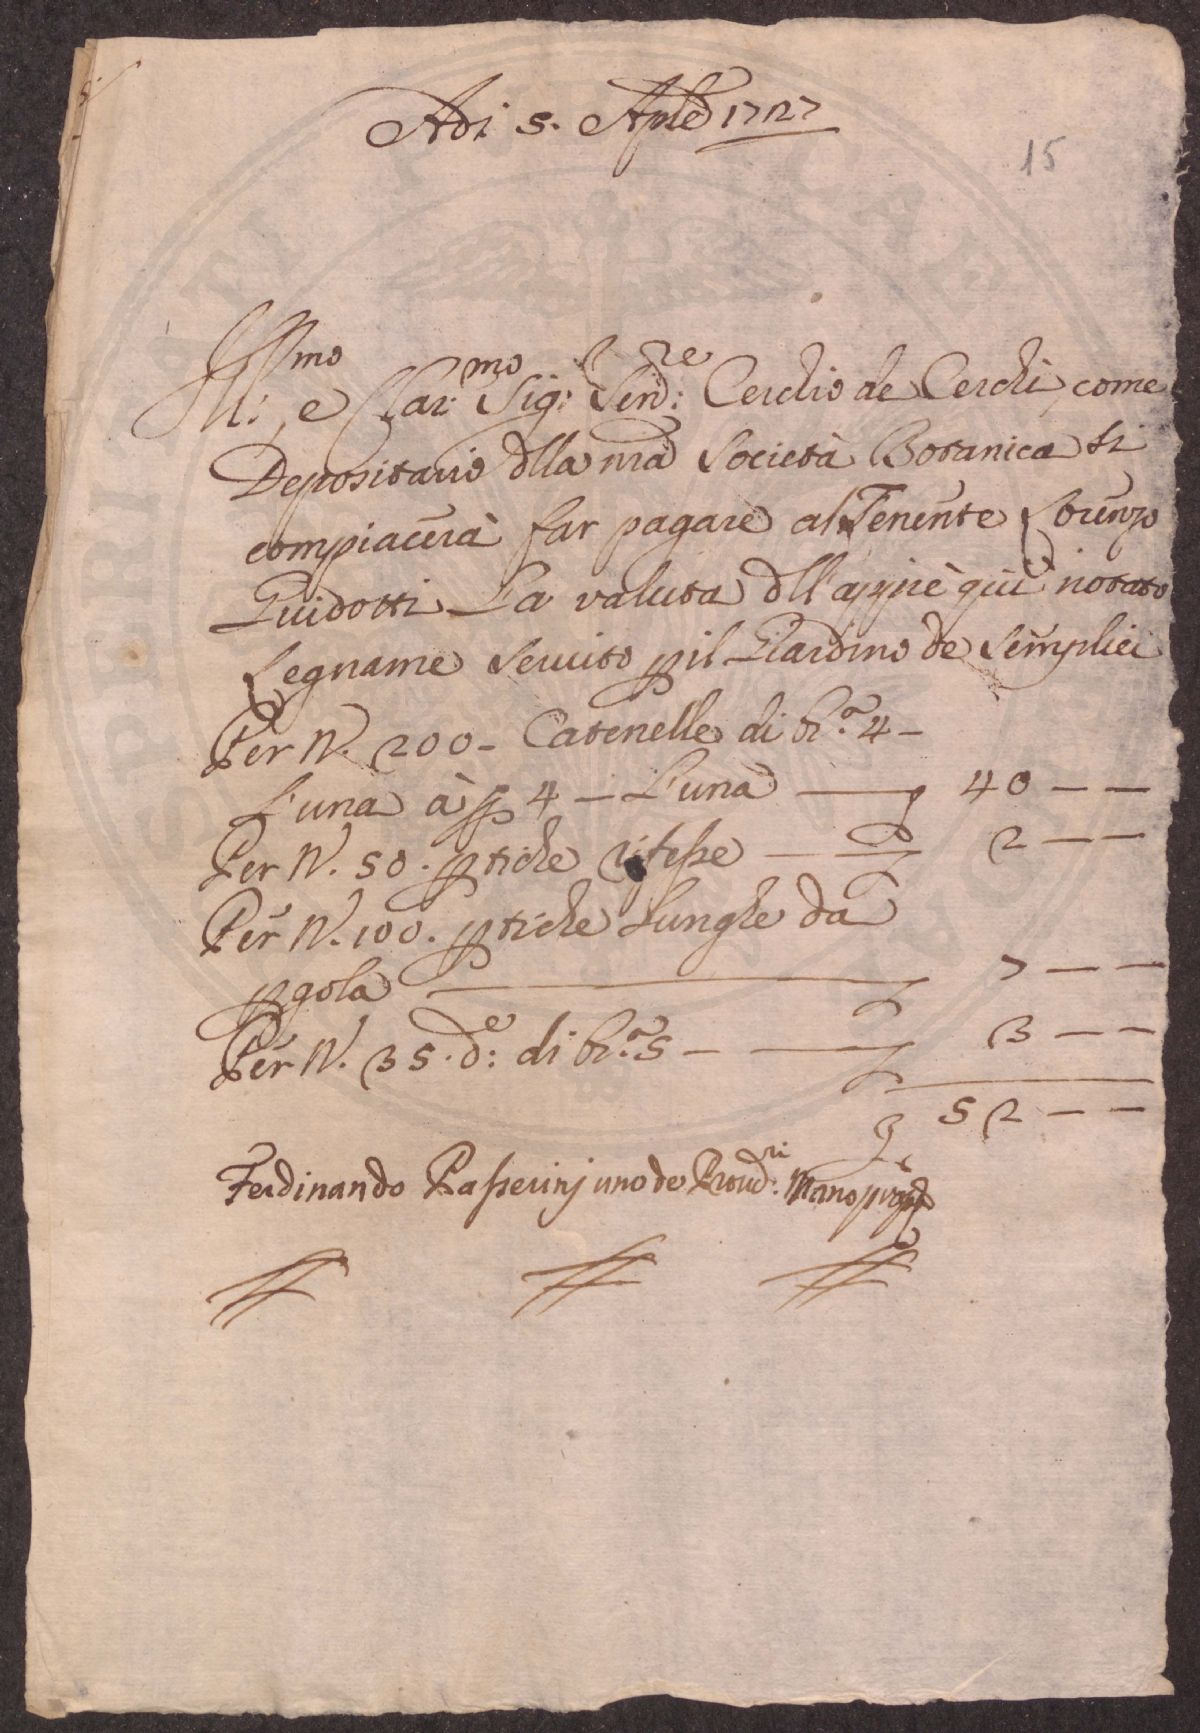 Adi 5. Aple 1727
15
Ill:mo, e Clar:mo Sig:re Sen:re Cerchio de Cerchi, come
Depositario dlla nrā Società Botanica si
compiacerà far pagare al Tenente Lorenzo
Guidotti La valuta dll'appiè qui notato
Legname seruito p il Giardino de Semplici
Per N. 200 - Catenelle di br.a 4 -
L'una à p 4 - L'una 40 - -
Per N. 50. ptiche rifesse 2 - -
Per N. 100. ptiche Lunghe da
pgola 7 - -
Per N. 35. d.e: di br.a 5 - 3 - -
52 - -
Ferdinando Passerinj uno de Proud:ri Mano ppa